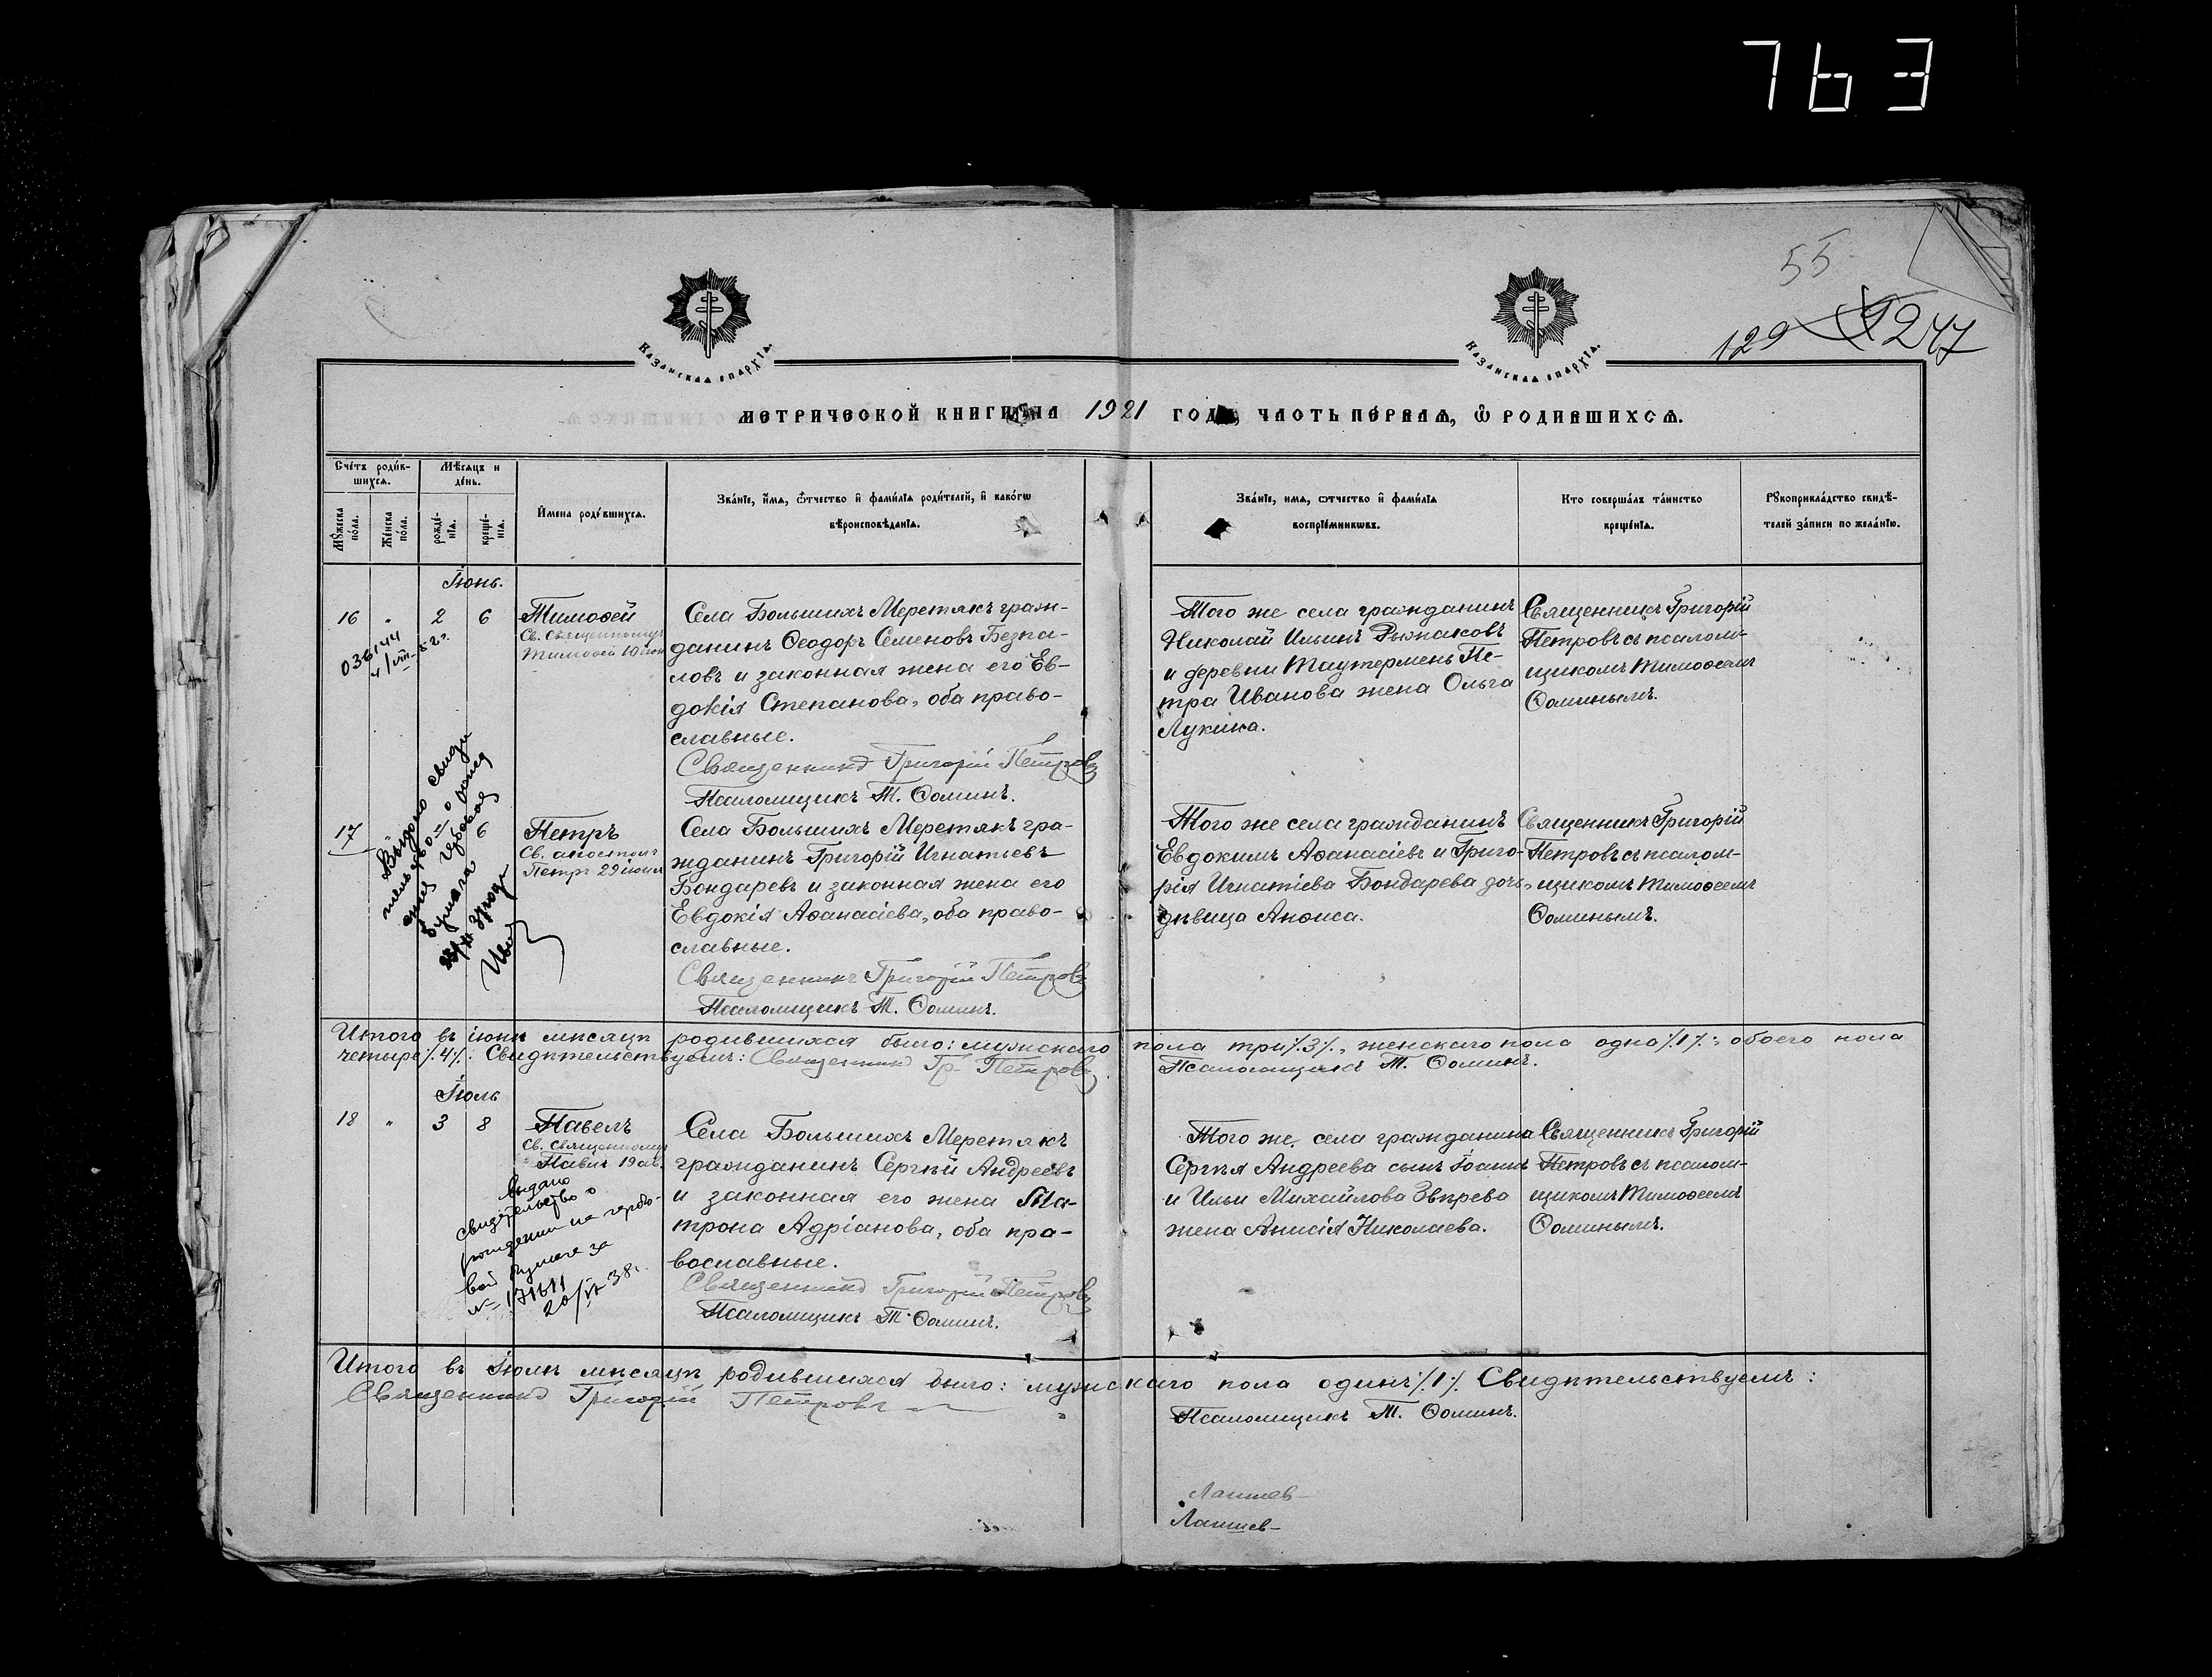 763
55
129 247
Казанская епархія.
Казанская епархія.
МЕТРИЧЕСКОЙ КНИГИ НА 1921 ГОДЪ, ЧАСТЬ ПЕРВАЯ, Ѡ РОДИВШИХСѦ.
Счетъ родив-
шихсѧ.
Мꙋжеска пола.
Женска пола.
Мѣсѧцъ и
день.
рожде-
нїѧ.
креще-
нїѧ.
Имена родившихсѧ.
Званїе, имѧ, ѻтчество и фамилїѧ родителей, и какогѡ
вѣроисповѣданїѧ.
Званїе, имѧ, ѻтчество и фамилїѧ
воспрїемникѡвъ.
Кто совершалъ таинство
крещенїѧ.
Рꙋкоприкладство свидѣ-
телей записи по желанїю.
Іюнь.
16 " 2 6
036144
Тимоѳей
Св. Священномуч
Тимоѳей 10 іюн
Села Большихъ Меретякъ граж-
данинъ Ѳеодоръ Семеновъ Безпа-
ловъ и законная жена его Ев-
докія Степанова, оба право-
славные.
Священникъ Григорій Петровъ
Псаломщикъ Т. Ѳоминъ.
Того же села гражданинъ
Николай Ильинъ
и деревни Таутермень Пе-
тра Иванова жена Ольга
Лукина.
Священникъ Григорій
Петровъ съ псалом-
щикомъ Тимоѳеемъ
Ѳоминымъ.
17 6
Выдано свиде
тельство о
гербовая
бумага
Петръ
Св. апостолъ
Петръ 29 іюня
Села Большихъ Меретякъ гра-
жданинъ Григорій Игнатьевъ
Бондаревъ и законная жена его
Евдокія Аѳанасіева, оба право-
славные.
Священникъ Григорій Петровъ
Псаломщикъ Т. Ѳоминъ.
Того же села гражданинъ
Евдокимъ Аѳанасіевъ и Григо-
рія Игнатіева Бондарева дочь,
дѣвица Анѳиса.
Священникъ Григорій
Петровъ съ псалом-
щикомъ Тимоѳеемъ
Ѳоминымъ.
Итого въ іюнѣ мѣсяцѣ родившихся было: мужскаго пола три ⁒3⁒, женскаго пола одна ⁒1⁒, обоего пола
четыре ⁒4⁒. Свидѣтельствуемъ: Священникъ Гр. Петровъ
Псаломщикъ Т. Ѳоминъ.
Іюль
18 " 3 8
Павелъ
Св. Священномуч
Павелъ 19 ав.
Выдано
свидетельство о
рождении на гербо-
вой бумаге за
№ 171611
20/VI 38г.
Села Большихъ Меретякъ
гражданинъ Сергѣй Андреевъ
и законная его жена Ма-
трона Адріанова, оба пра-
вославные.
Священникъ Григорій Петровъ
Псаломщикъ Т. Ѳоминъ.
Того же села гражданина
Сергѣя Андреева сынъ Іоаннъ
и Ильи Михайлова Звѣрева
жена Анисія Николаева.
Священникъ Григорій
Петровъ съ псалом-
щикомъ Тимоѳеемъ
Ѳоминымъ.
Итого въ іюлѣ мѣсяцѣ родившихся было: мужскаго пола одинъ ⁒1⁒ Свидѣтельствуемъ:
Священникъ Григорій Петровъ
Псаломщикъ Т. Ѳоминъ.
Лаптев
Лаптев